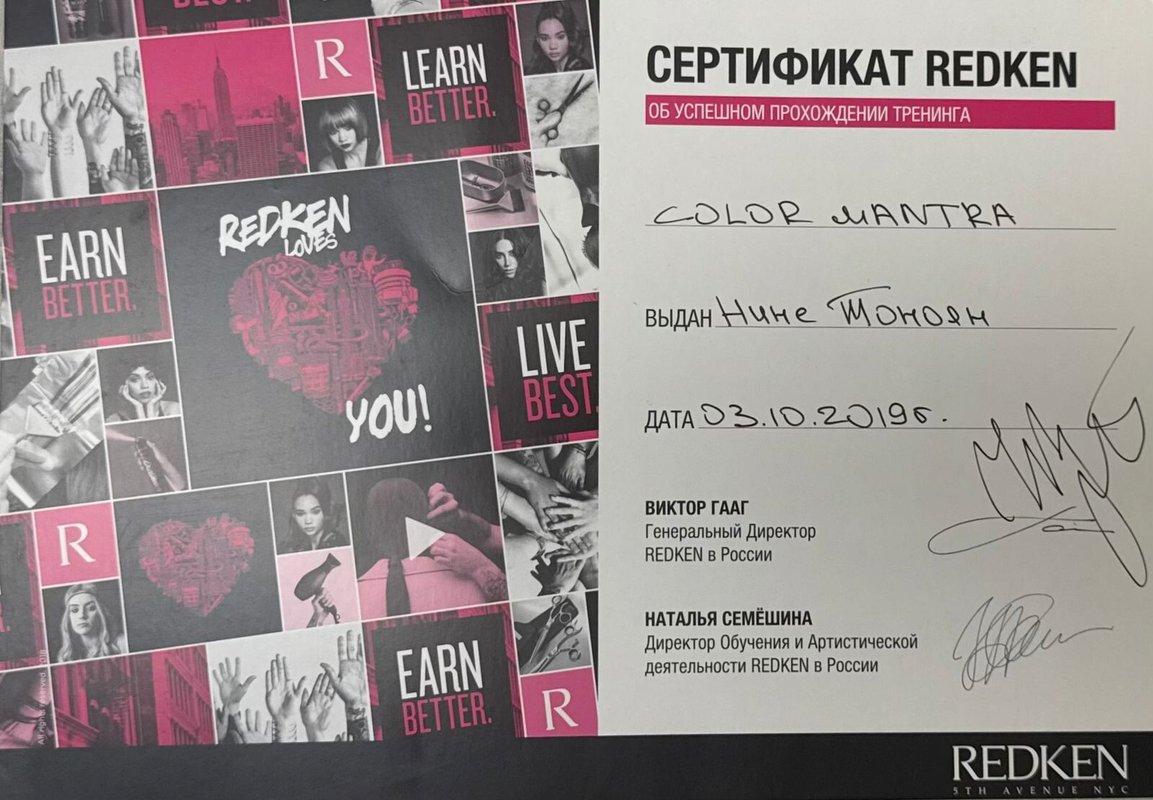 BEST.
R
LEARN
BETTER.
EARN
BETTER.
REDKEN
LOVES
YOU!
LIVE
BEST.
R
EARN
BETTER.
R
СЕРТИФИКАТ REDKEN
ОБ УСПЕШНОМ ПРОХОЖДЕНИИ ТРЕНИНГА
COLOR MANTRA
ВЫДАН Нине Тоноян
ДАТА 03.10.2019г.
ВИКТОР ГААГ
Генеральный Директор
REDKEN в России
НАТАЛЬЯ СЕМЁШИНА
Директор Обучения и Артистической
деятельности REDKEN в России
REDKEN
5TH AVENUE NYC